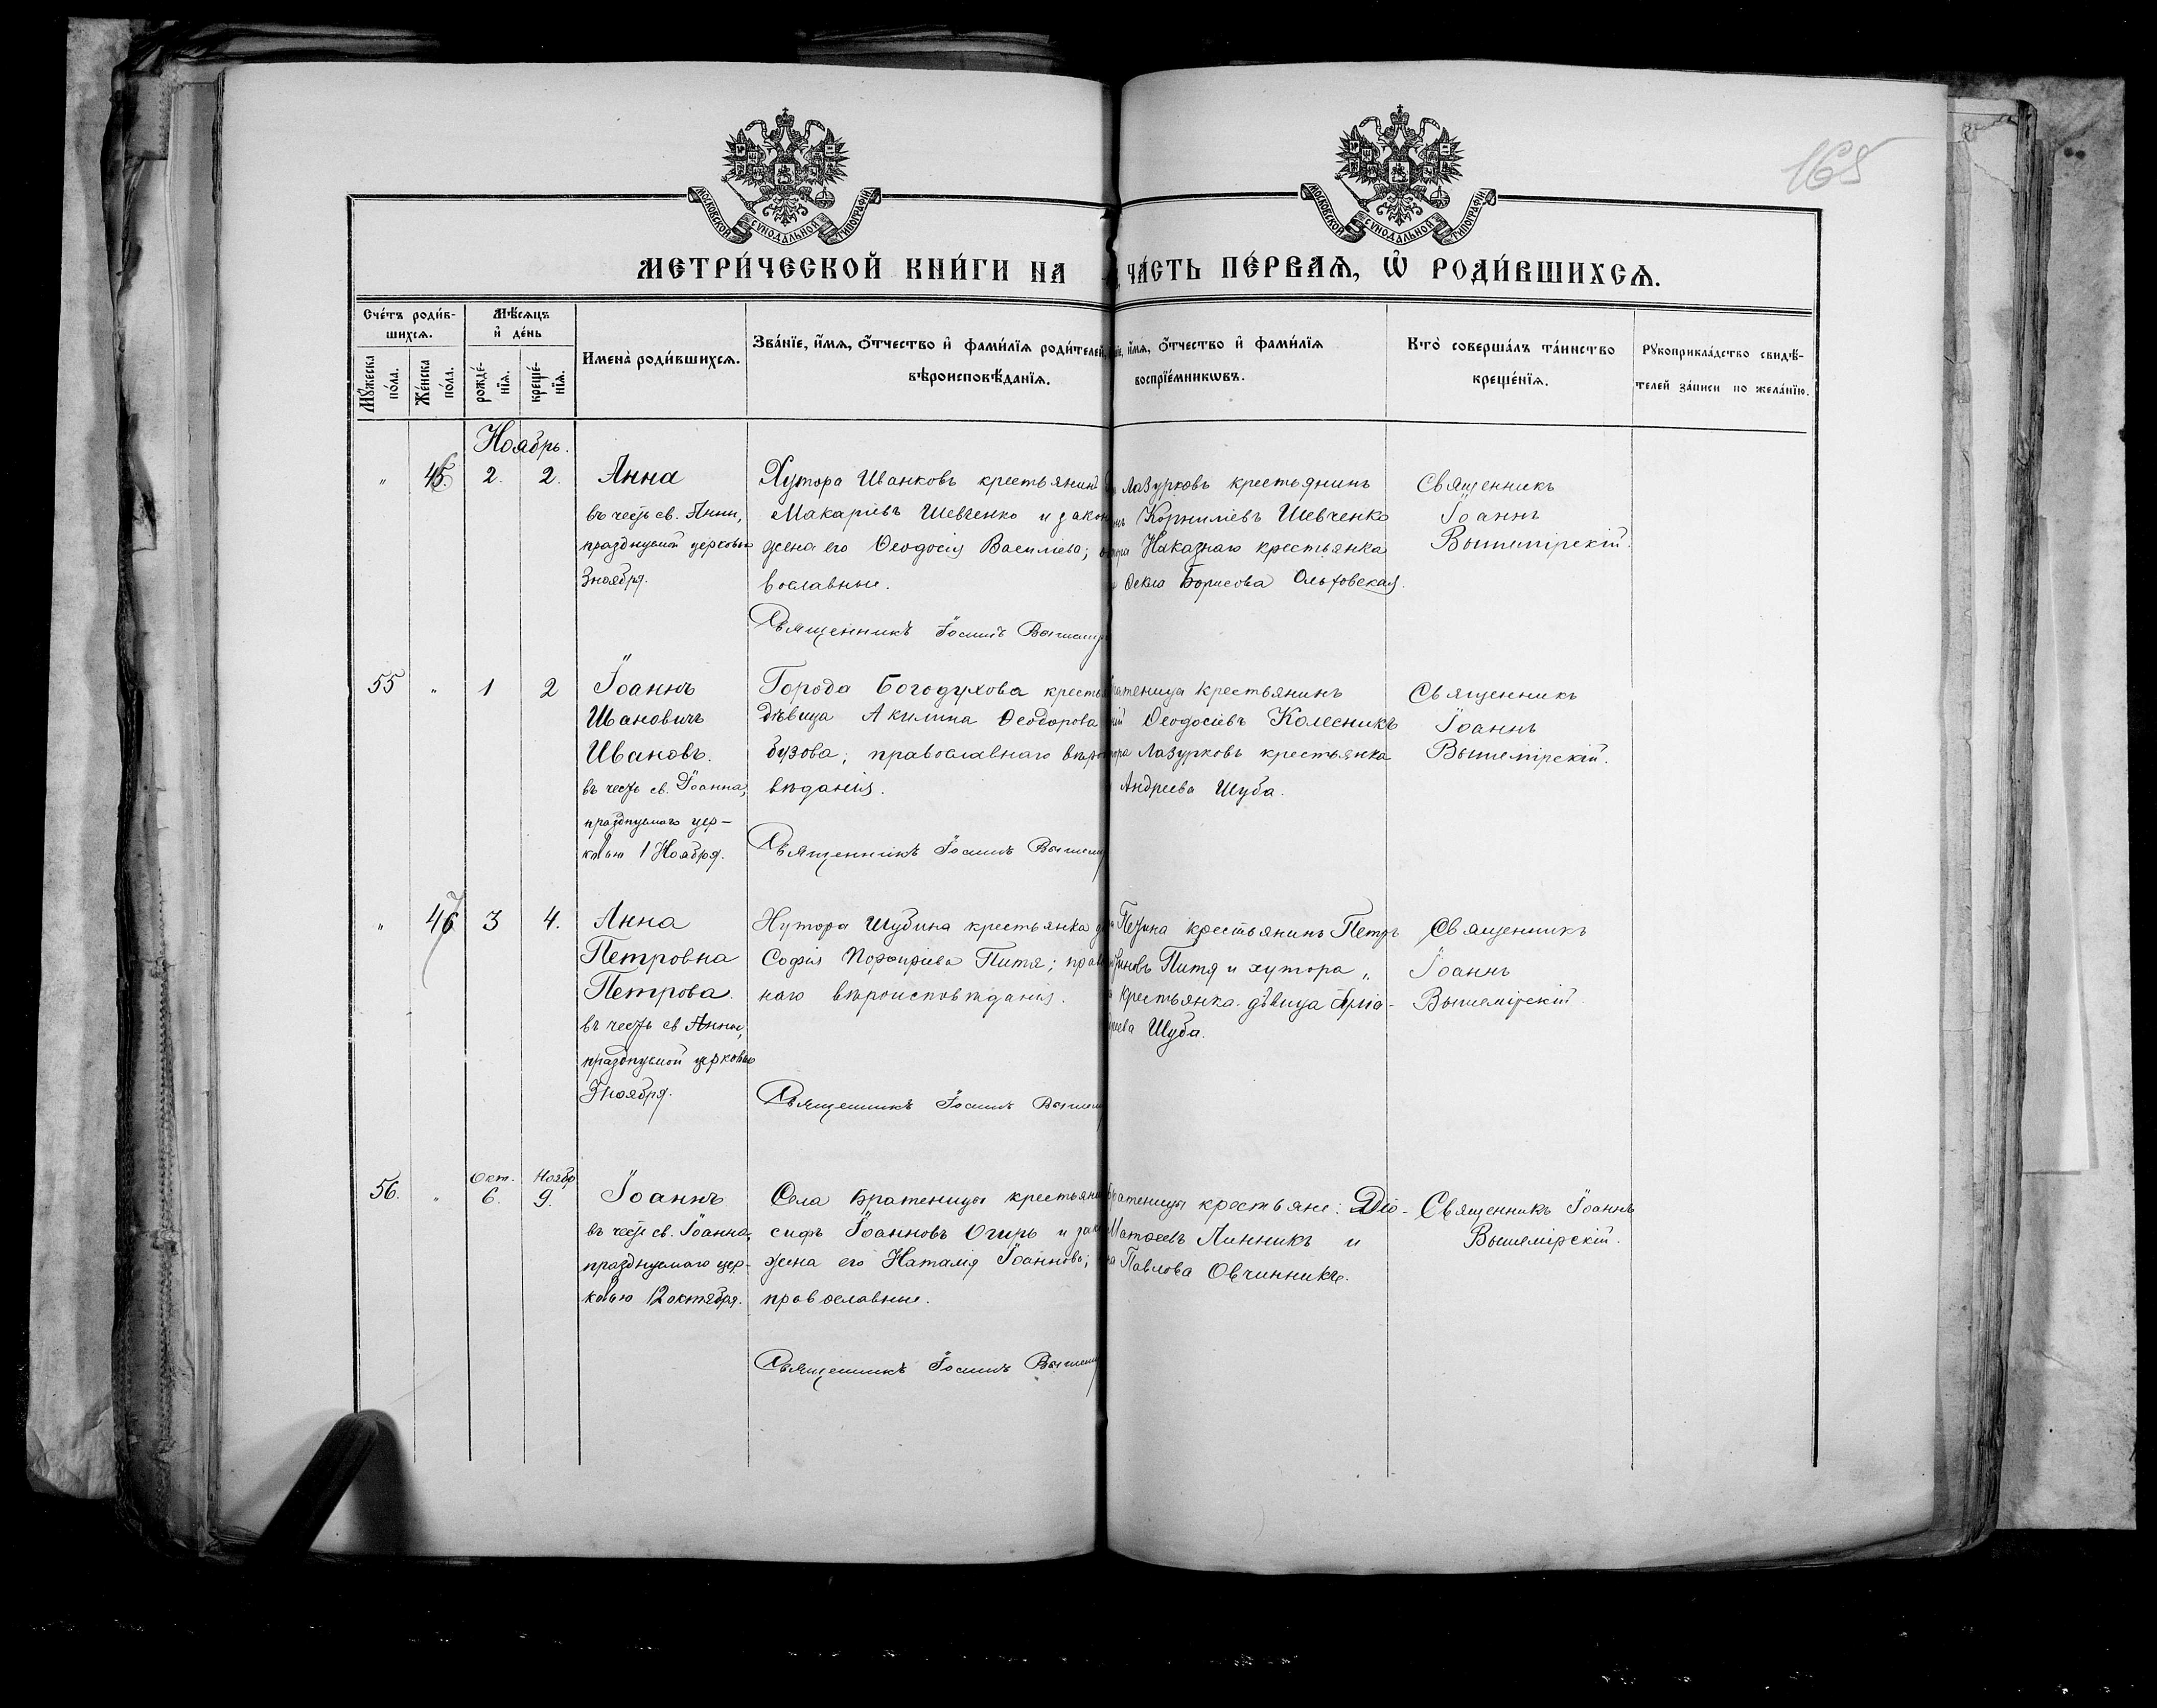 168
МОСКОВСКОЙ СУНОДАЛЬНОЙ ТИПОГРАФІИ
МОСКОВСКОЙ СУНОДАЛЬНОЙ ТИПОГРАФІИ
МЕТРИ́ЧЕСКОЙ КНИ́ГИ НА
ЧА́СТЬ ПЕ́РВАѦ, Ѡ РОДИ́ВШИХСѦ.
Сче́тъ роди́в-
шихсѧ.
Мꙋ́жеска по́ла.
Же́нска по́ла.
Мѣ́сѧцъ
и҆ де́нь
рожде́-
нїѧ.
креще́-
нїѧ.
Имена̀ роди́вшихсѧ.
Зва́нїе, и҆́мѧ, ѻ҆́тчество и҆ фами́лїѧ роди́телей,
вѣроисповѣ́данїѧ.
и҆́мѧ, ѻ҆́тчество и҆ фами́лїѧ
воспрїе́мникѡвъ.
Кто̀ соверша́лъ та́инство
креще́нїѧ.
Рꙋкоприкла́дство свидѣ́-
телей за́писи по жела́нїю.
Ноябрь.
" 2. 2. Анна
въ честь св. Анны,
празднуемой церковью
3 ноября.
Хутора Иванковъ крестьянинъ
Макаріевъ Шевченко и закон
жена его Ѳеодосія Васильева;
вославные.
Священникъ Іоаннъ Вышемір
Лазурковъ крестьянинъ
Корниліевъ Шевченко
Наказнаго крестьянка
Ѳекла Борисова Ольховская.
Священникъ
Іоаннъ
Вышемірскій.
55 " 1 2 Іоаннъ
Ивановичъ
Ивановъ.
въ честь св. Іоанна,
празднуемаго цер-
ковью 1 Ноября.
Города Богодухова крестья
дѣвица Акилина Ѳеодорова
бузова; православнаго вѣро
вѣданія.
Священникъ Іоаннъ Вышемі
атеницы крестьянинъ
Ѳеодосіевъ Колесникъ
Лазурковъ крестьянка
Андреева Шуба.
Священникъ
Іоаннъ
Вышемірскій.
" 3 4. Анна
Петровна
Петрова.
въ честь св Анны,
празднуемой церковью
3 ноября.
Хутора Шубина крестьянка
Софія Порфиріева Питя; прав
наго вѣроисповѣданія.
Священникъ Іоаннъ Вышем
крестьянинъ Петръ
Питя и хутора "
крестьянка дѣвица
Шуба.
Священникъ
Іоаннъ
Вышемірскій
56. " Окт. 6. Ноябр 9. Іоаннъ
въ честь св. Іоанна,
празднуемаго цер-
ковью 12 октября.
Села Братеницы крестьяни
сифъ Іоанновъ Огирь и зак
жена его Наталія Іоаннова;
православные.
Священникъ Іоаннъ Вышем
ратеницы крестьяне: Діо-
Матѳеевъ Линникъ и
Павлова Овчинникъ.
Священникъ Іоаннъ
Вышемірскій.